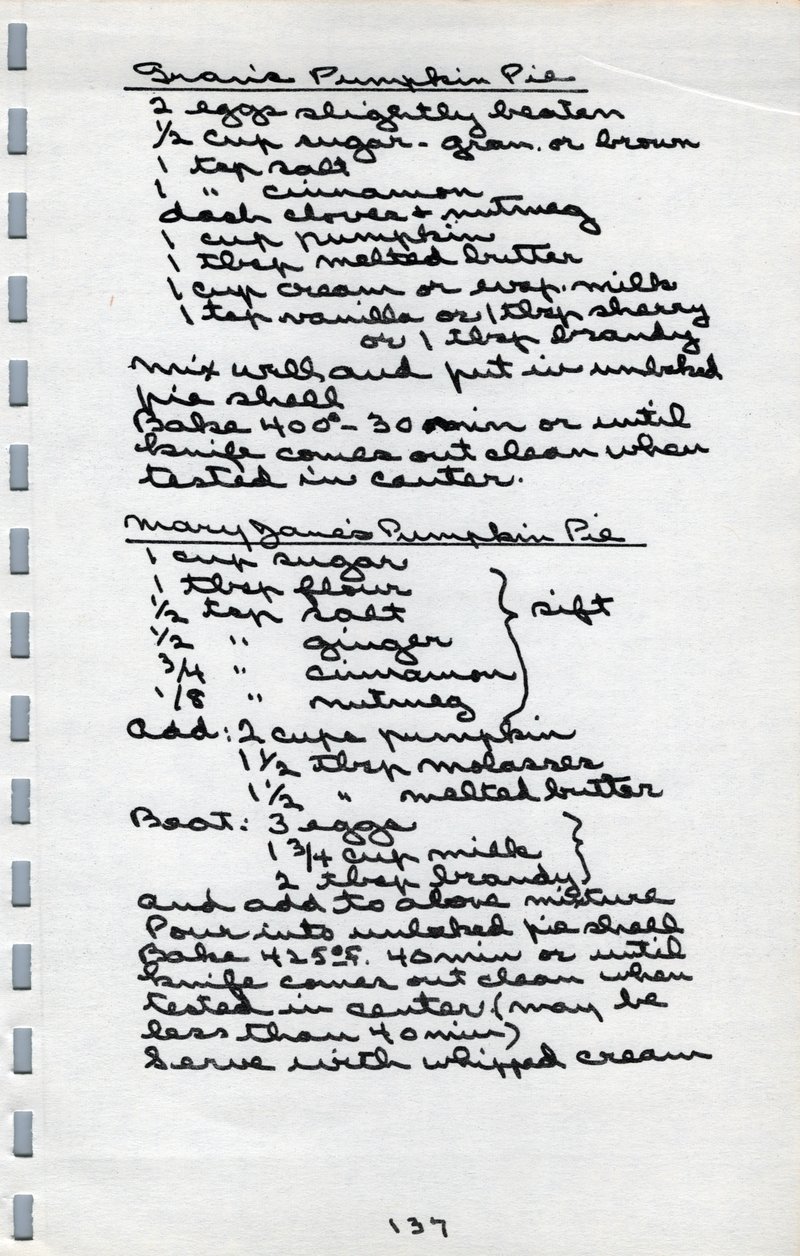 Gran's Pumpkin Pie
2 eggs slightly beaten
1/2 cup sugar - gran. or brown
1 tsp salt
1 " cinnamon
dash cloves + nutmeg
1 cup pumpkin
1 tbsp melted butter
1 cup cream or evap. milk
1 tsp vanilla or 1 tbsp sherry
or 1 tbsp brandy
Mix well and put in unbaked
pie shell
Bake 400° - 30 min or until
knife comes out clean when
tested in center.
Mary Jane's Pumpkin Pie
1 cup sugar
1 tbsp flour
1/2 tsp salt } sift
1/2 " ginger
3/4 " cinnamon
1/8 " nutmeg
Add: 2 cups pumpkin
1 1/2 tbsp molasses
1 1/2 " melted butter
Beat: 3 eggs
1 3/4 cup milk
2 tbsp brandy
and add to above mixture
Pour into unbaked pie shell
Bake 425°F. 40 min or until
knife comes out clean when
tested in center. (may be
less than 40 min)
Serve with whipped cream
137